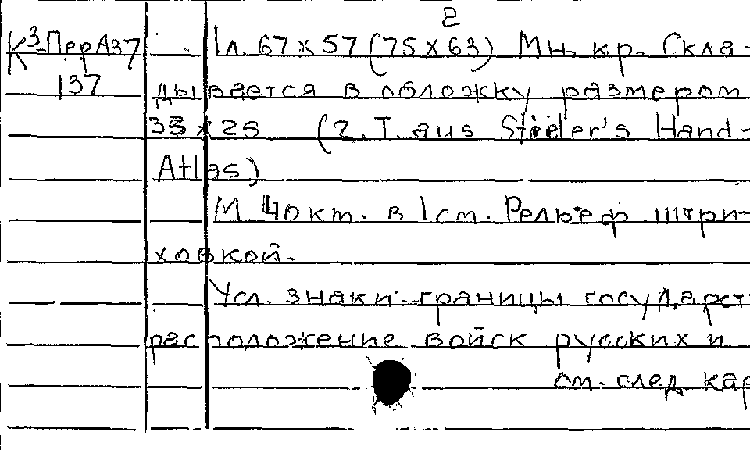 2
К3-Пер А37 1л. 67×57 (75×63) Мн. кр. Скла-
137 дывается в обложку размером
33×25 (2. T. aus Stieler's Hand-
Atlas)
М 40 км. в 1 см. Рельеф штри-
ховкой.
Усл. знаки: границы государст
расположение войск русских и
см. след. кар